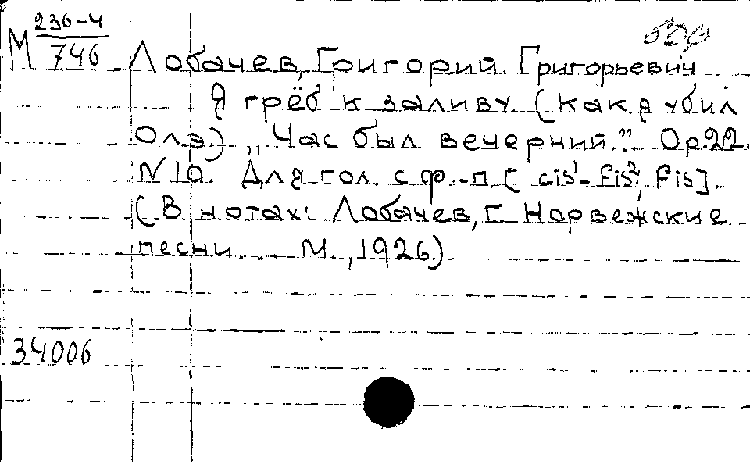 М 236-4/746
Лобачев, Григорий Григорьевич
Я грёб к заливу (как я убил
Олэ) „Час был вечерний." Op.22
N 10. Для гол. с ф.-п. [cis¹-fis², fis].
(В нотах: Лобачев, Г. Норвежские
песни. М., 1926)
34006